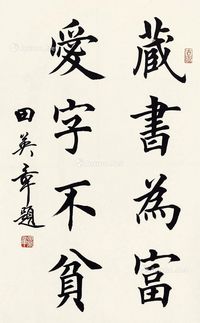 藏書為富
愛字不貧
田英章題